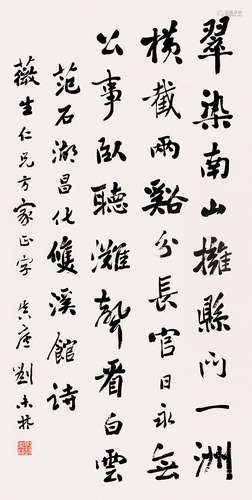 翠染南山擁縣門一洲
橫截兩谿分長官日永無
公事臥聽灘聲看白雲
范石湖昌化雙溪館詩
薇生仁兄方家正字 庵 劉未林